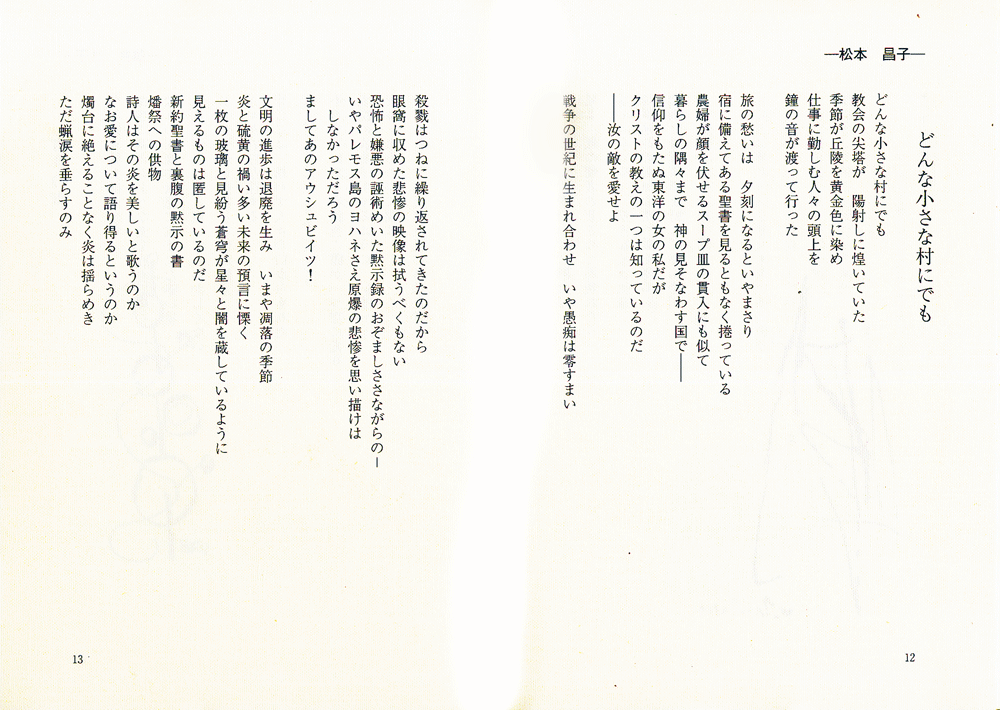 ―松本　昌子―
どんな小さな村にでも
どんな小さな村にでも
教会の尖塔が　陽射しに煌いていた
季節が丘陵を黄金色に染め
仕事に勤しむ人々の頭上を
鐘の音が渡って行った
旅の愁いは　夕刻になるといやまさり
宿に備えてある聖書を見るともなく捲っている
農婦が顔を伏せるスープ皿の貫入にも似て
暮らしの隅々まで　神の見そなわす国で――
信仰をもたぬ東洋の女の私だが
クリストの教えの一つは知っているのだ
――汝の敵を愛せよ
戦争の世紀に生まれ合わせ　いや愚痴は零すまい
12
殺戮はつねに繰り返されてきたのだから
眼窩に収めた悲惨の映像は拭うべくもない
恐怖と嫌悪の誣術めいた黙示録のおぞましささながらの―
いやパレモス島のヨハネさえ原爆の悲惨を思い描けは
しなかっただろう
ましてあのアウシュビイツ！
文明の進歩は退廃を生み　いまや凋落の季節
炎と硫黄の禍い多い未来の預言に慄く
一枚の玻璃と見紛う蒼穹が星々と闇を蔵しているように
見えるものは匿しているのだ
新約聖書と裏腹の黙示の書
燔祭への供物
詩人はその炎を美しいと歌うのか
なお愛について語り得るというのか
燭台に絶えることなく炎は揺らめき
ただ蝋涙を垂らすのみ
13